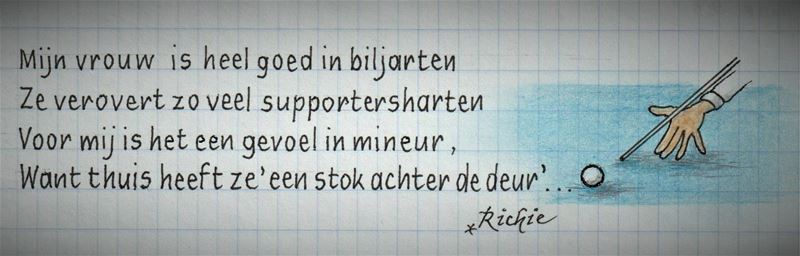 Mijn vrouw is heel goed in biljarten
Ze verovert zo veel supportersharten
Voor mij is het een gevoel in mineur,
Want thuis heeft ze 'een stok achter de deur'...
*Richie